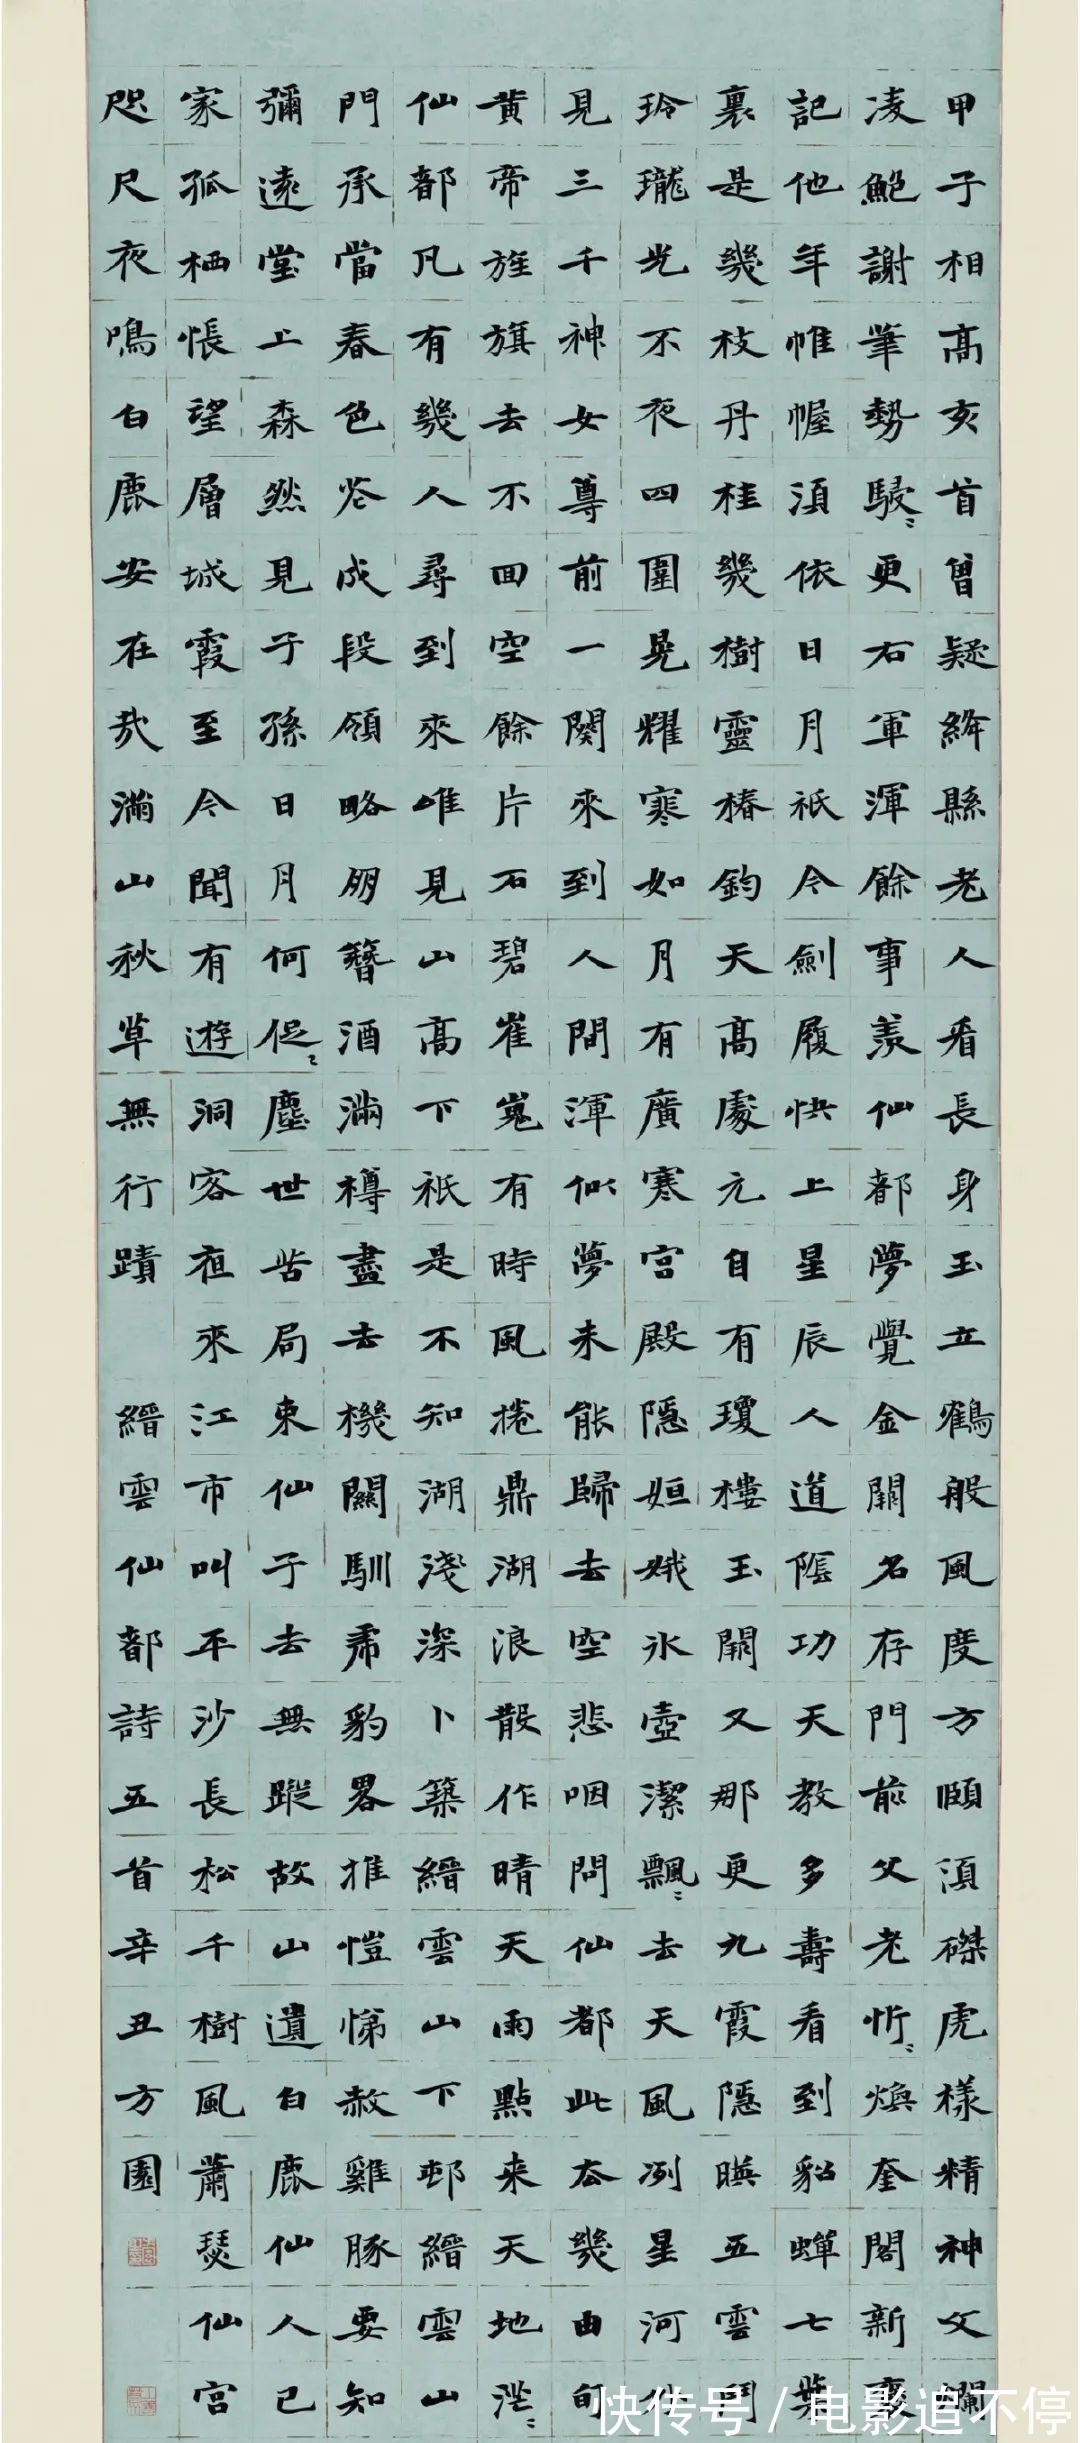 甲子相高亥首曾疑絳縣老人看長身玉立鶴般風度方頤須磔虎樣精神文爛
凌鮑謝筆勢駸〻更右軍渾餘事羨仙都夢覺金闕名存門前父老忻〻煥奎閣新褒
記他年帷幄須依日月祇今劍履快上星辰人道陰功天教多壽看到貂蟬七葉
裏是幾枝丹桂幾樹靈椿鈞天高處元自有瓊樓玉闕又那更九霞隱映五雲
玲瓏光不夜四圍晃耀寒如月有廣寒宮殿隱姮娥冰壺潔飄〻去天風冽星河
見三千神女尊前一闋來到人間渾似夢未能歸去空悲咽問仙都此去幾由旬
黃帝旌旗去不回空餘片石碧崔嵬有時風捲鼎湖浪散作晴天雨點来天地茫〻
仙都凡有幾人尋到來唯見山高下祇是不知湖淺深卜築縉雲山下邨縉雲山
門承當春色恣成段領略朋簪酒滿樽盡去機關馴虎豹畧推愷悌赦雞豚要知
彌遠堂上森然見子孫日月何促〻塵世苦局束仙子去無蹤故山遺白鹿仙人已
家孤栖悵望層城霞至今聞有遊洞客夜來江市叫平沙長松千樹風蕭瑟仙宮
咫尺夜鳴白鹿安在哉滿山秋草無行蹟　縉雲仙都詩五首辛丑方園
快传号 / 电影追不停